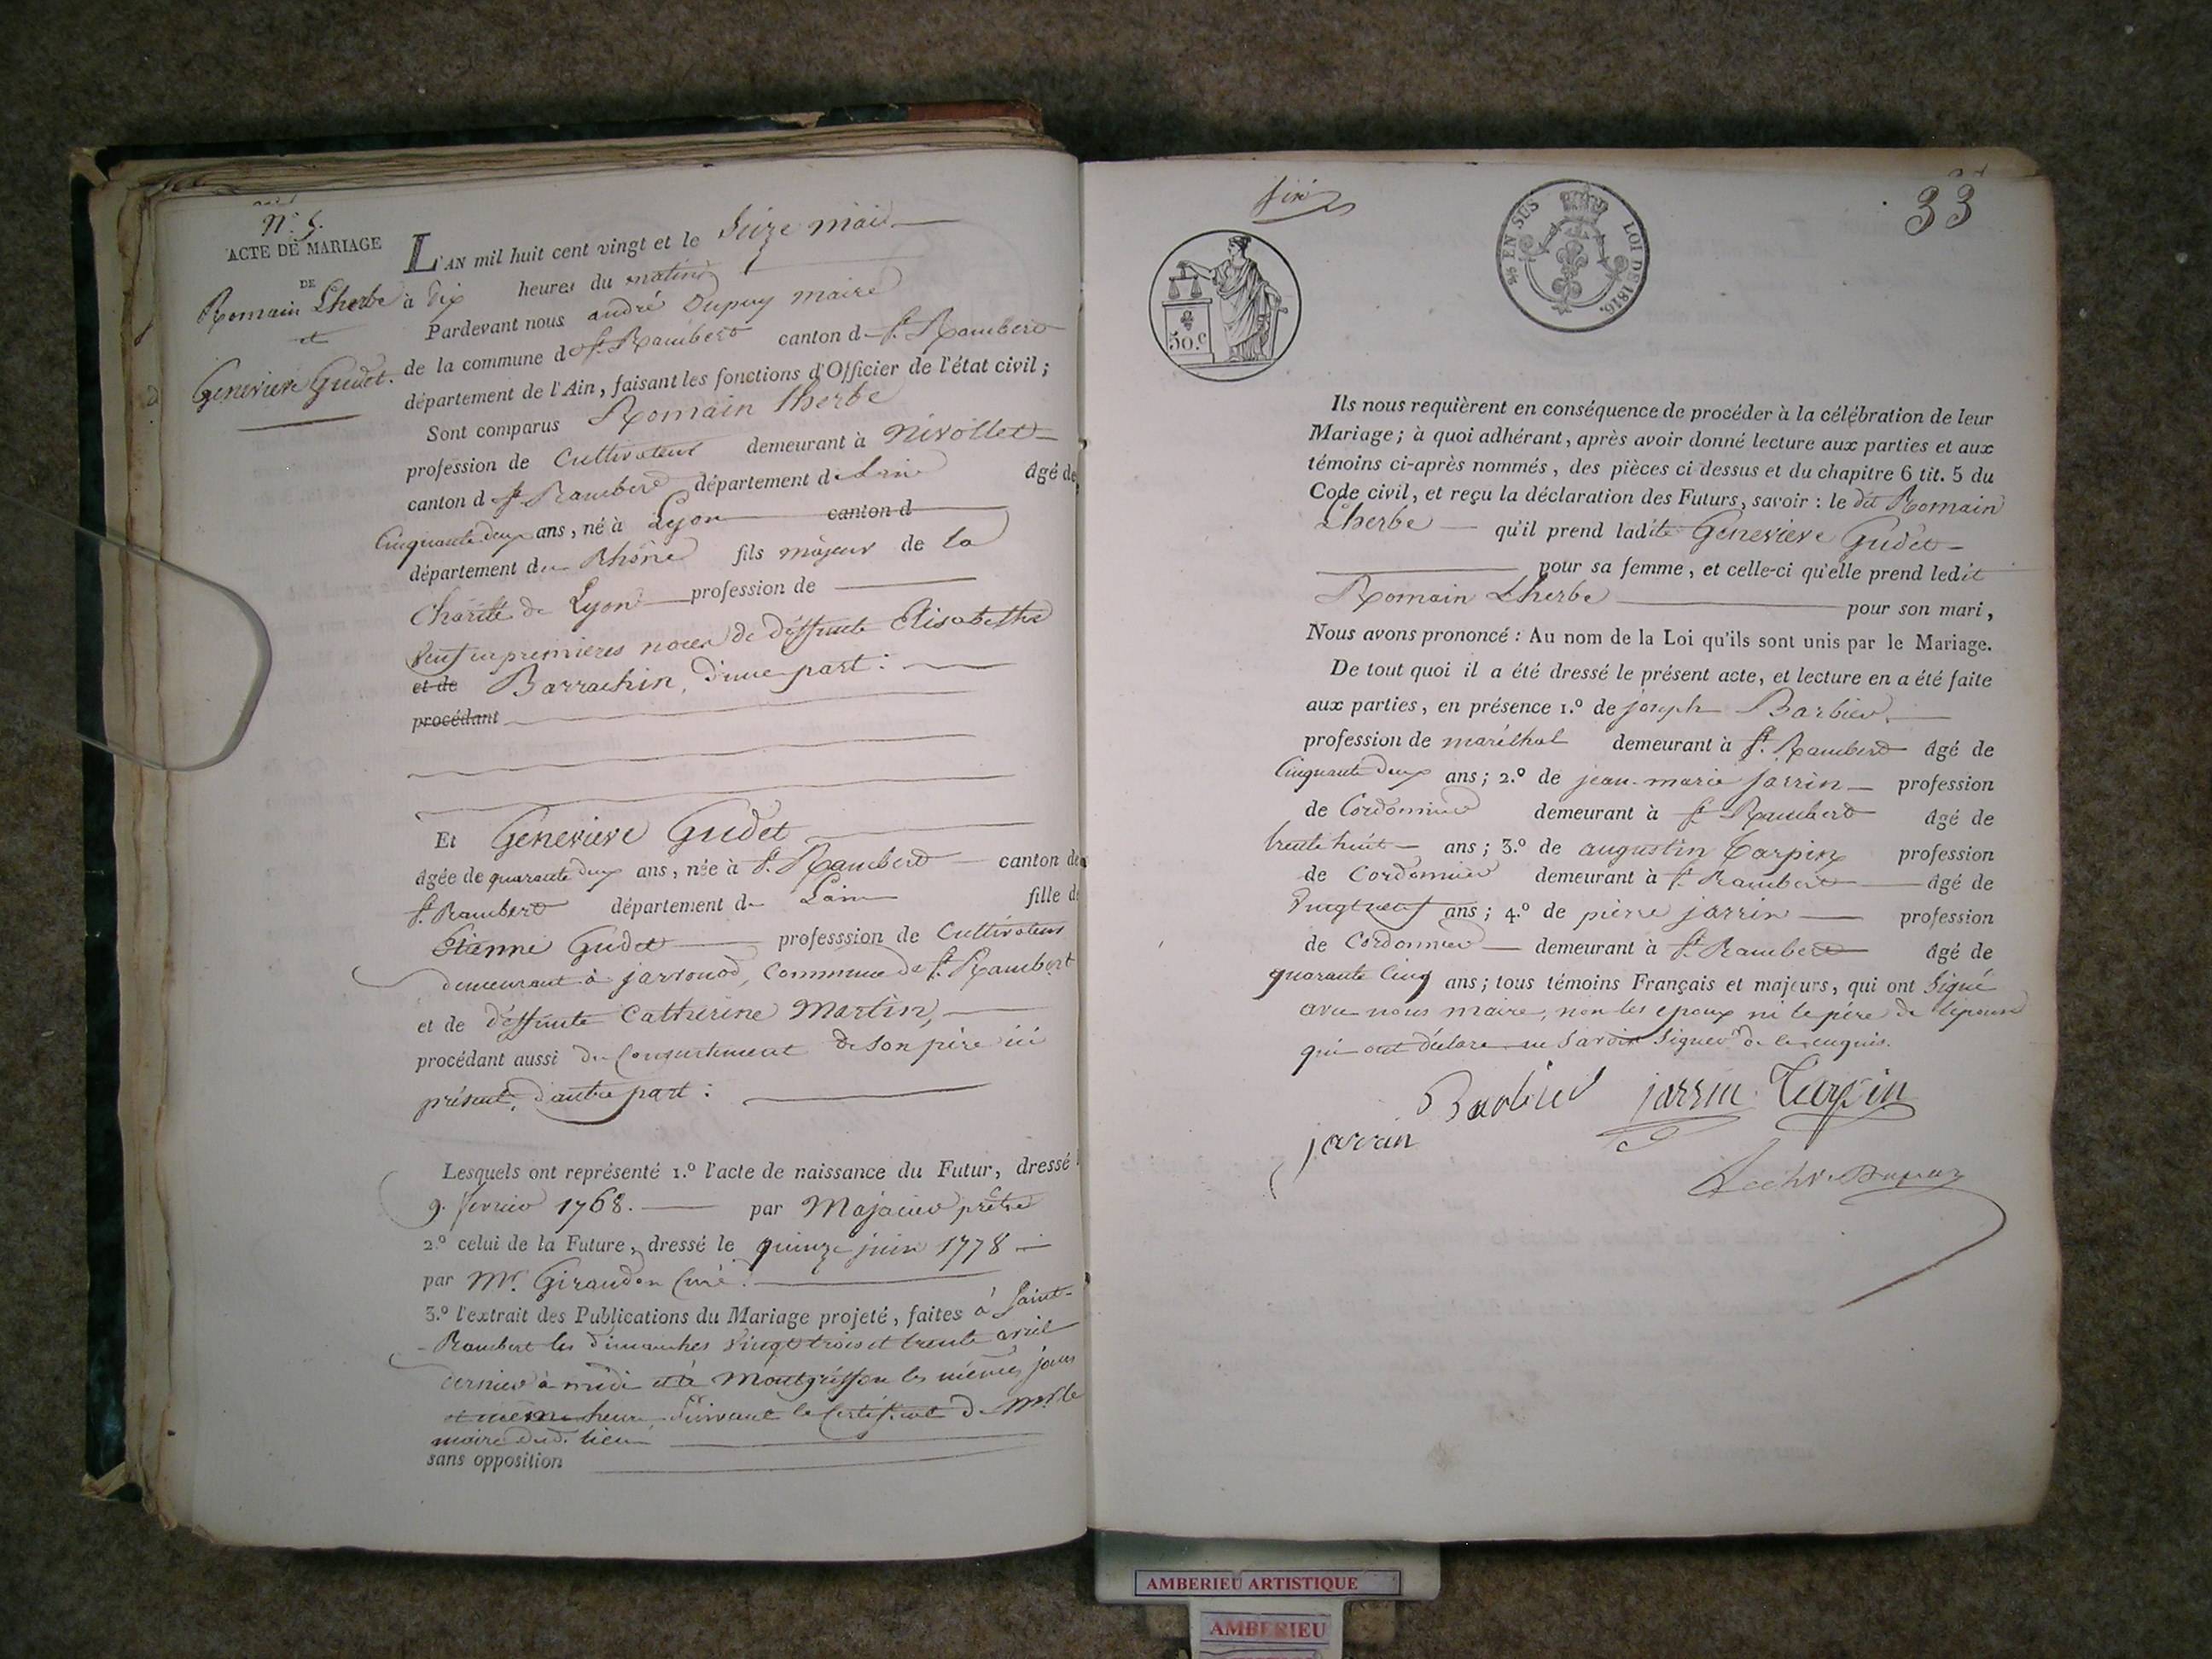 N.º 5.
ACTE DE MARIAGE
DE
Romain Lherbe
et
Genevieve Gudet.
L'AN mil huit cent vingt et le Seize mai
à dix heures du matin
Pardevant nous andré Dupuy maire
de la commune de St. Rambert canton de St. Rambert
département de l'Ain, faisant les fonctions d'Officier de l'état civil;
Sont comparus Romain Lherbe
profession de Cultivateur demeurant à Nivollet
canton de St. Rambert département de Lain âgé de
Cinquante deux ans, né à Lyon canton d
département du Rhône fils majeur de la
Charité de Lyon profession de
veuf en premieres noces de deffunte Elisabethe
et de Barrachin, d'une part:
procédant
Et Genevieve Gudet
âgée de quarante deux ans, née à St. Rambert canton de
St. Rambert département de Lain fille de
Etienne Gudet professsion de Cultivateur
demeurant à jarrouod, Commune de St. Rambert
et de deffunte Catherine Martin,
procédant aussi du Consentement de son père ici
présent, d'autre part:
Lesquels ont représenté 1.º l'acte de naissance du Futur, dressé
9. fevrier 1768. par prêtre
2.º celui de la Future, dressé le quinze juin 1778
par Mr. Giraudon Curé.
3.º l'extrait des Publications du Mariage projeté, faites à Saint-
Rambert les dimanches vingt trois et trente avril
dernier à midi et à Montgriffon les mêmes jours
et même heure, Suivant le Certificat de Mr. le
maire dud. lieu
sans opposition
33
50.C
EN SUS LOI DE 1816.
Ils nous requièrent en conséquence de procéder à la célébration de leur
Mariage; à quoi adhérant, après avoir donné lecture aux parties et aux
témoins ci-après nommés, des pièces ci dessus et du chapitre 6 tit. 5 du
Code civil, et reçu la déclaration des Futurs, savoir: le dit Romain
Lherbe qu'il prend ladite Genevieve Gudet
pour sa femme, et celle-ci qu'elle prend ledit
Romain Lherbe pour son mari,
Nous avons prononcé: Au nom de la Loi qu'ils sont unis par le Mariage.
De tout quoi il a été dressé le présent acte, et lecture en a été faite
aux parties, en présence 1.º de joseph Barbier,
profession de maréchal demeurant à St. Rambert âgé de
Cinquante deux ans; 2.º de jean-marie jarrin profession
de Cordonnier demeurant à St. Rambert âgé de
trente huit ans; 3.º de augustin Tarpin profession
de Cordonnier demeurant à St. Rambert âgé de
vingt neuf ans; 4.º de pierre jarrin profession
de Cordonnier demeurant à St. Rambert âgé de
quarante Cinq ans; tous témoins Français et majeurs, qui ont Signé
avec nous maire, non les epoux ni le père de l'épouse
qui ont déclaré ne Savoir Signer de ce enquis.
Barbier jarrin Tarpin
jarrin
Dupuy
AMBERIEU ARTISTIQUE
AMBERIEU